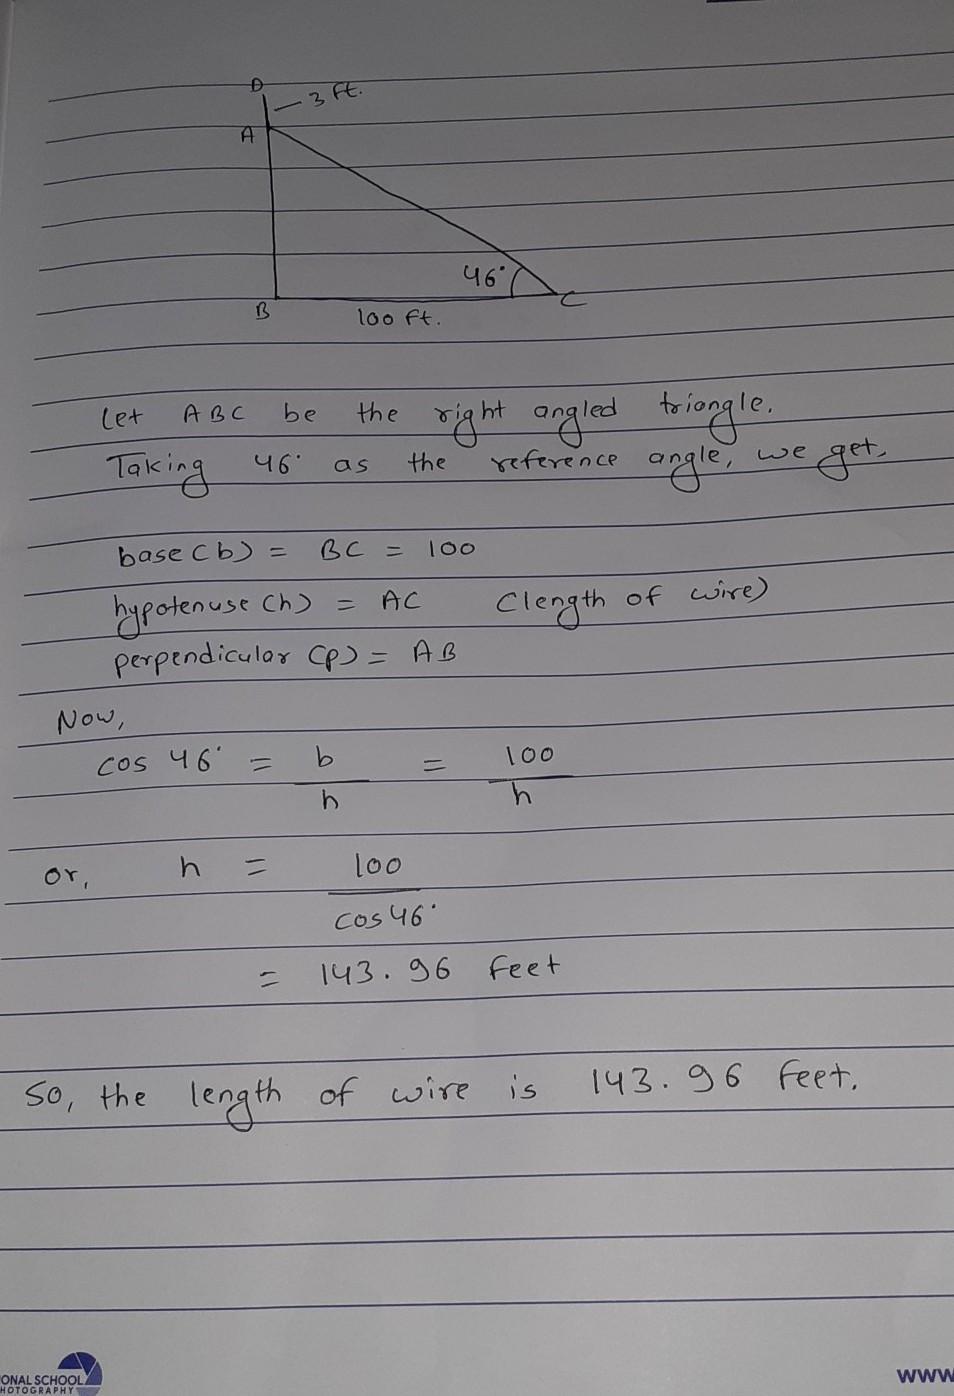 D
3 ft.
A
46°
B
C
100 ft.
Let ABC be the right angled triangle.
Taking 46° as the reference angle, we get,
base (b) = BC = 100
hypotenuse (h) = AC (length of wire)
perpendicular (p) = AB
Now,
cos 46° = b/h = 100/h
or, h = 100/cos 46°
= 143.96 feet
So, the length of wire is 143.96 feet.
ONAL SCHOOL
HOTOGRAPHY
WWW